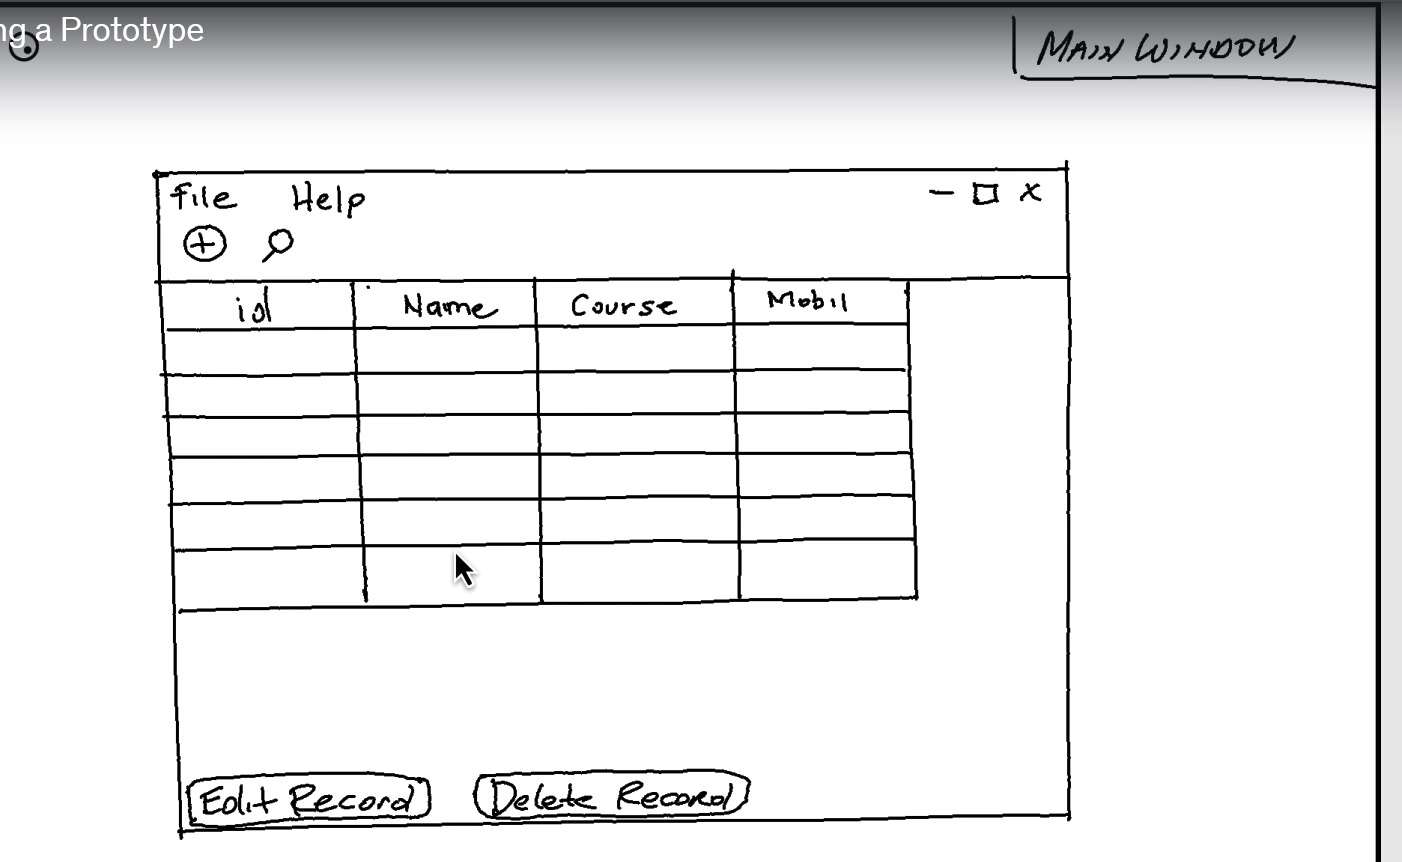 ng a Prototype
MAIN WINDOW
File Help
id Name Course Mobil
Edit Record Delete Record